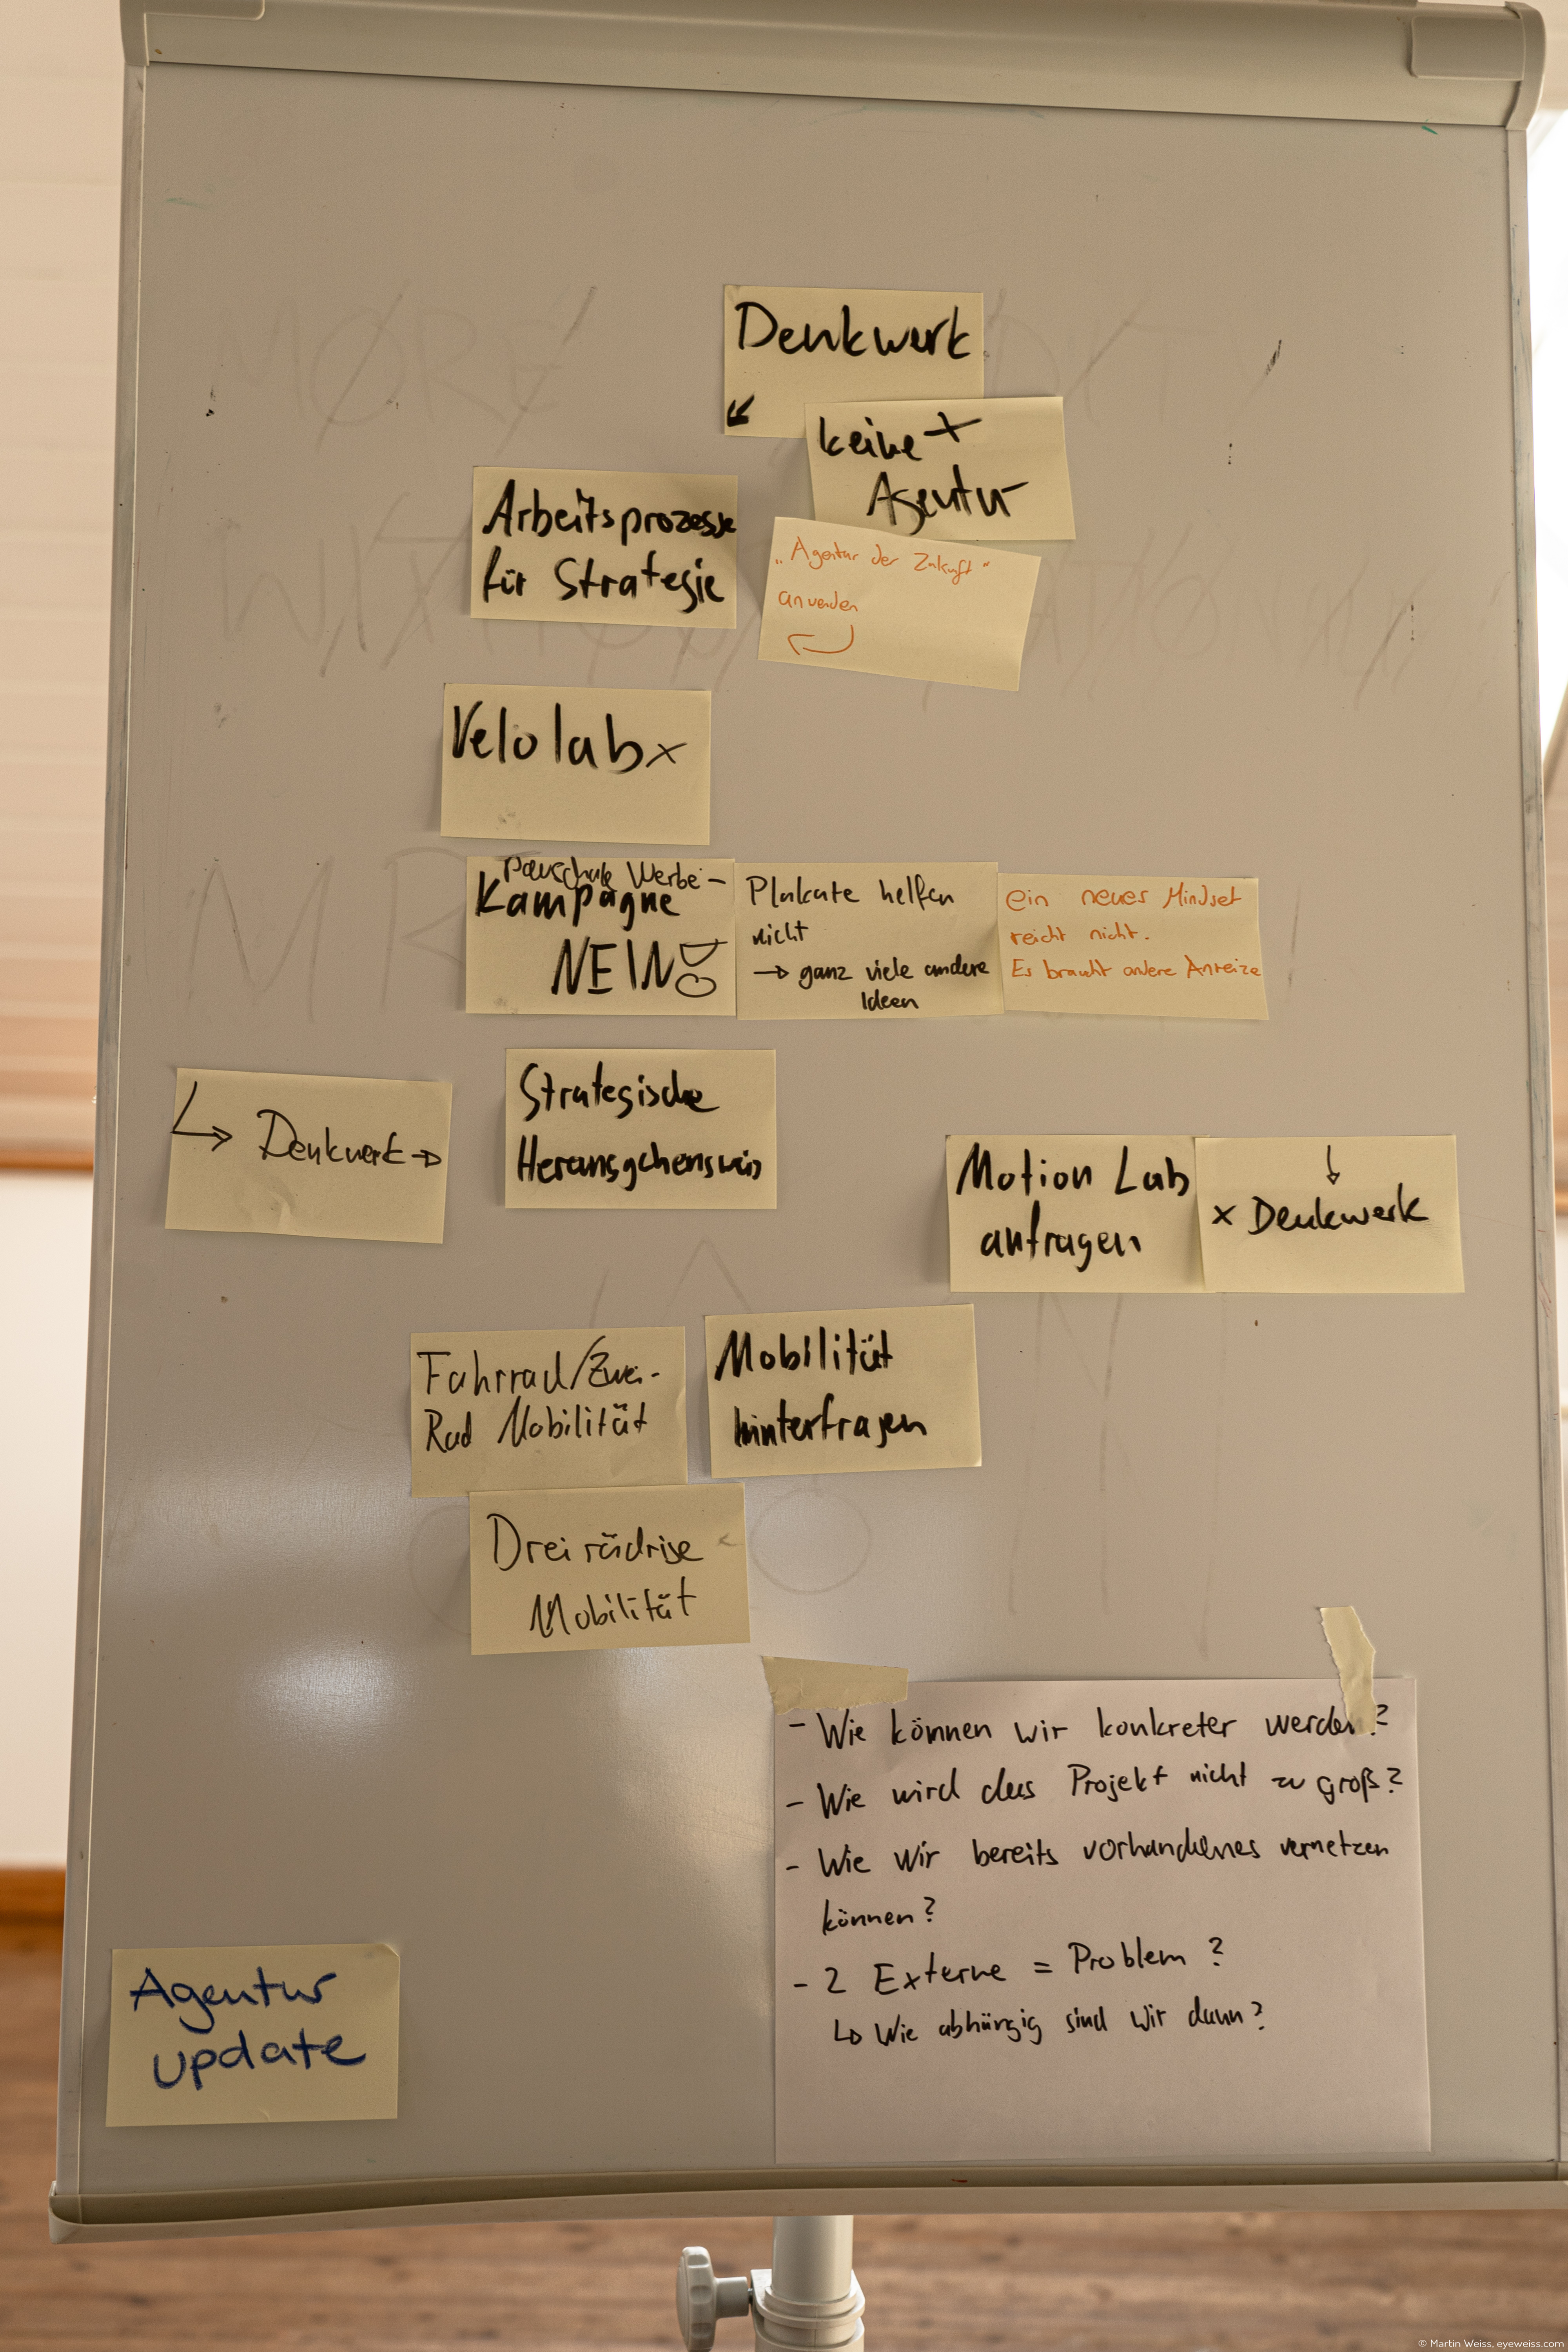 Denkwerk
keine
Agentur
Arbeitsprozesse
für Strategie
„Agentur der Zukunft“
anwenden
Velolab x
Pauschale Werbe-
Kampagne
NEIN!
Plakate helfen
nicht
→ ganz viele andere
Ideen
ein neues Mindset
reicht nicht.
Es braucht andere Anreize
Denkwerk →
Strategische
Herangehensweis
Motion Lab
anfragen
x Denkwerk
Fahrrad/Zwei-
Rad Mobilität
Mobilität
hinterfragen
Dreirädrige
Mobilität
- Wie können wir konkreter werden?
- Wie wird das Projekt nicht zu groß?
- Wie wir bereits vorhandenes vernetzen
können?
- 2 Externe = Problem?
↳ Wie abhängig sind wir dann?
Agentur
update
© Martin Weiss, eyeweiss.com